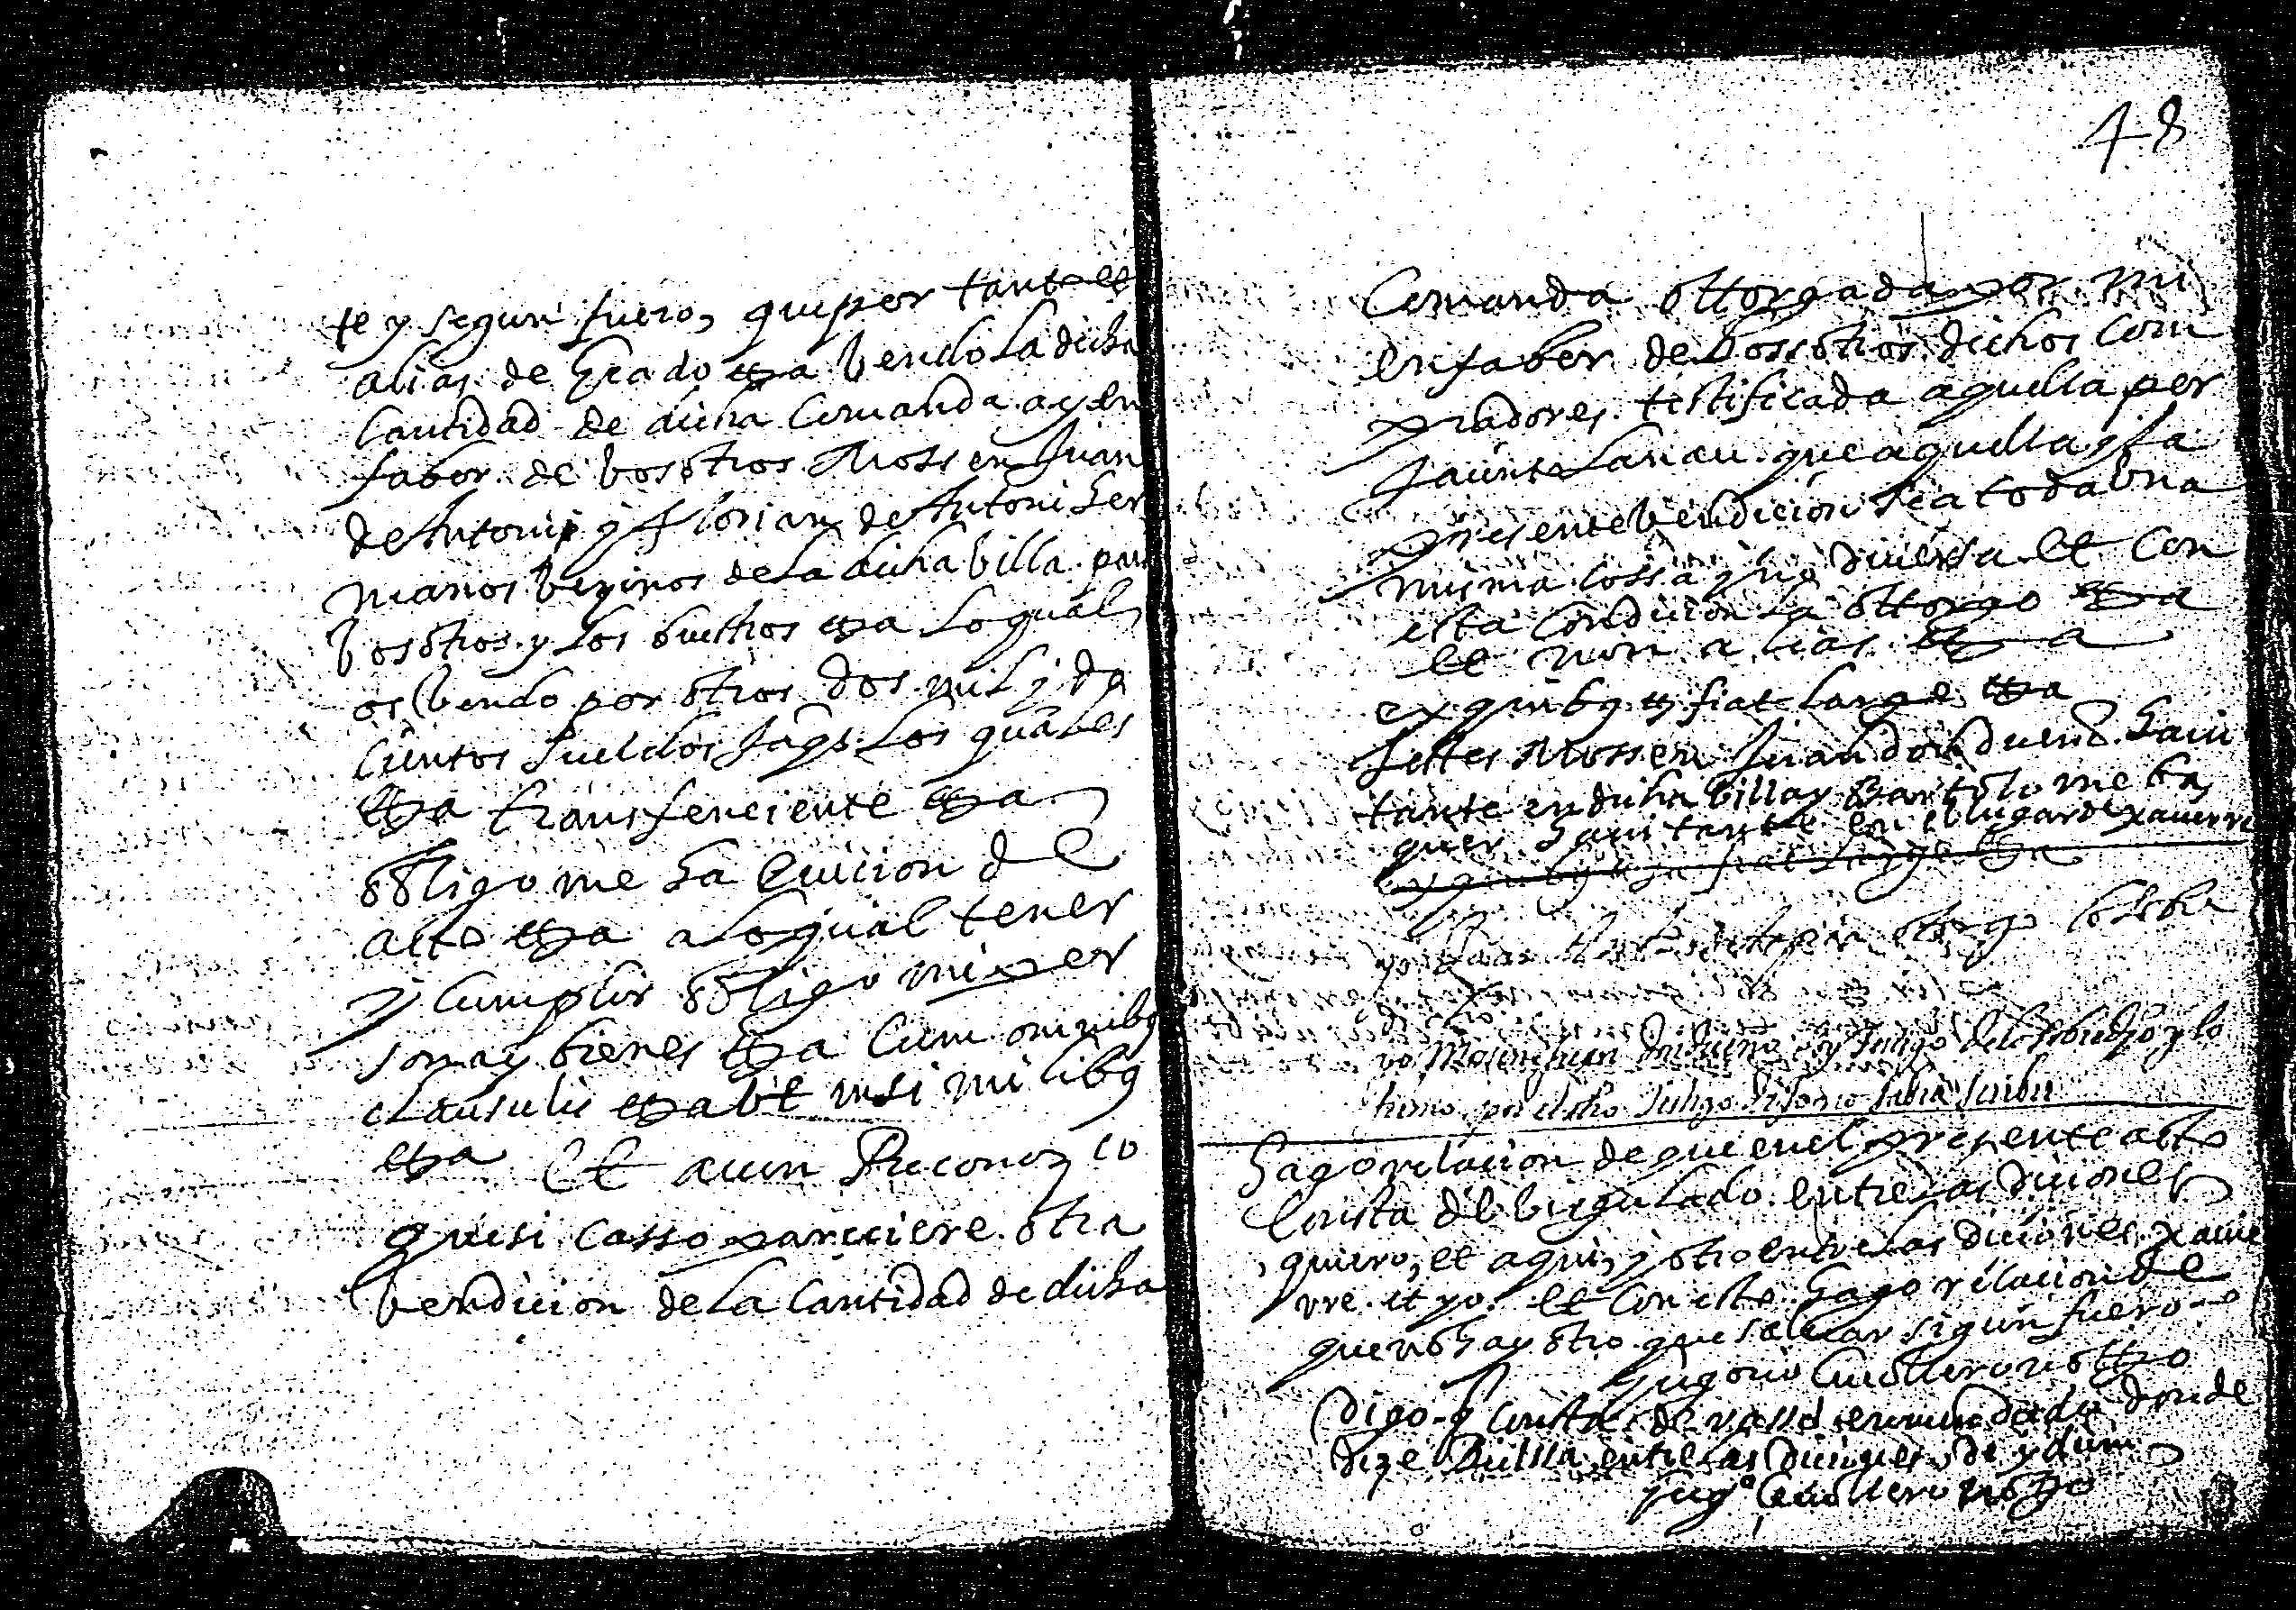 te y segun fuero, que por tanto et
alias de grado etza bendo la dicha
Cantidad de dicha Comanda a y en
fabor de bosotros Mossen Juan
de Antoni y Florian de Antoni her
manos bezinos de la dicha billa para
bosotros y los buestros etza lo qual
os bendo por otros dos mil y do
cientos sueldos Jaqs los quales
etza transferiente etza
obligo me ha euicion de
acto etza a lo qual tener
y cumplir obligo mi per
sona y bienes etza Cum omnibq
clausulis etza ut in similibq
etza Et aun Reconozco
que si casso pareciere otra
bendicion de la Cantidad de dicha
48
Comanda ottorgada por mi
en faber de bossotros dichos Com
pradores testificada aquella por
Jaime Lanau que aquella y la
presente bendicion sea toda una
misma cossa y no diuersa et con
esta condicion la ottorgo etza
et non alias etza
ex quibq etz fiat large etza
testes Mossen Juan don duen hauı
tante en dicha billa y Bartolome ba
quer hauitante en el lugar de xauierre
ex quibq etza fiat large etza
yo otorgo lo sobre
dicho
yo Mosen Juan soy testigo de lo sobredho y lo
firmo por el dho testigo
Hago relacion de que en el presente acto
Consta de birgulado entre las diciones
quiero, et aqui, y otro entre las diciones xauie
rre. et yo. et con esto hago relacion de
que no hay otro que saluar sigun fuero
notto
Digo q consta de rasso enmendado donde
dize entre las diciones de y dicım
notto